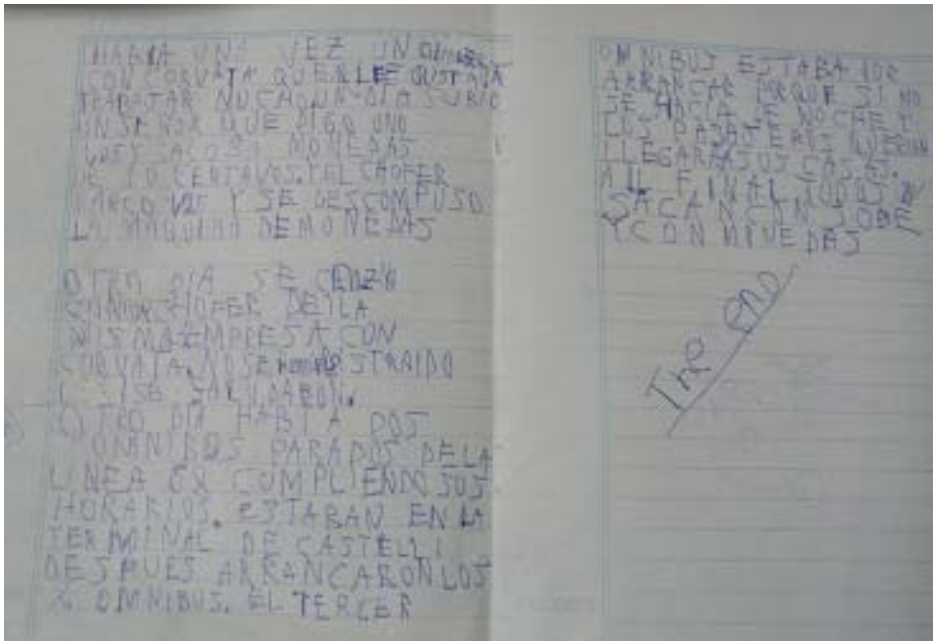 HABIA UNA VEZ UN
CON CORVATA QUE LE GUSTABA
TRABAJAR MUCHO UN DIA SUBIO
UN SEÑOR QUE DIGO UNO
Y SACO 51 MONEDAS
DE 10 CENTAVOS. EL CHOFER
MARCO 1,25 Y SE DESCOMPUSO
LA MAQUINA DE MONEDAS
OTRO DIA SE CRUZO
CON OTRO CHOFER DE LA
MISMA EMPRESA CON
CORVATA. NO SE STRAIDO
Y SE SALUDARON.
OTRO DIA HABIA DOS
OMNIBUS PARADOS DE LA
LINEA CUMPLIENDO SUS
HORARIOS. ESTABAN EN LA
TERMINAL DE CASTELLI
DESPUES ARRANCARON LOS
2 OMNIBUS. EL TERCER
OMNIBUS ESTABA POR
ARRANCAR PORQUE SI NO
SE HACIA DE NOCHE Y
LOS PASAJEROS QUERIAN
LLEGAR A SUS CASAS.
AL FINAL TODOS
SACAN CON SUBE
Y CON MONEDAS
The end